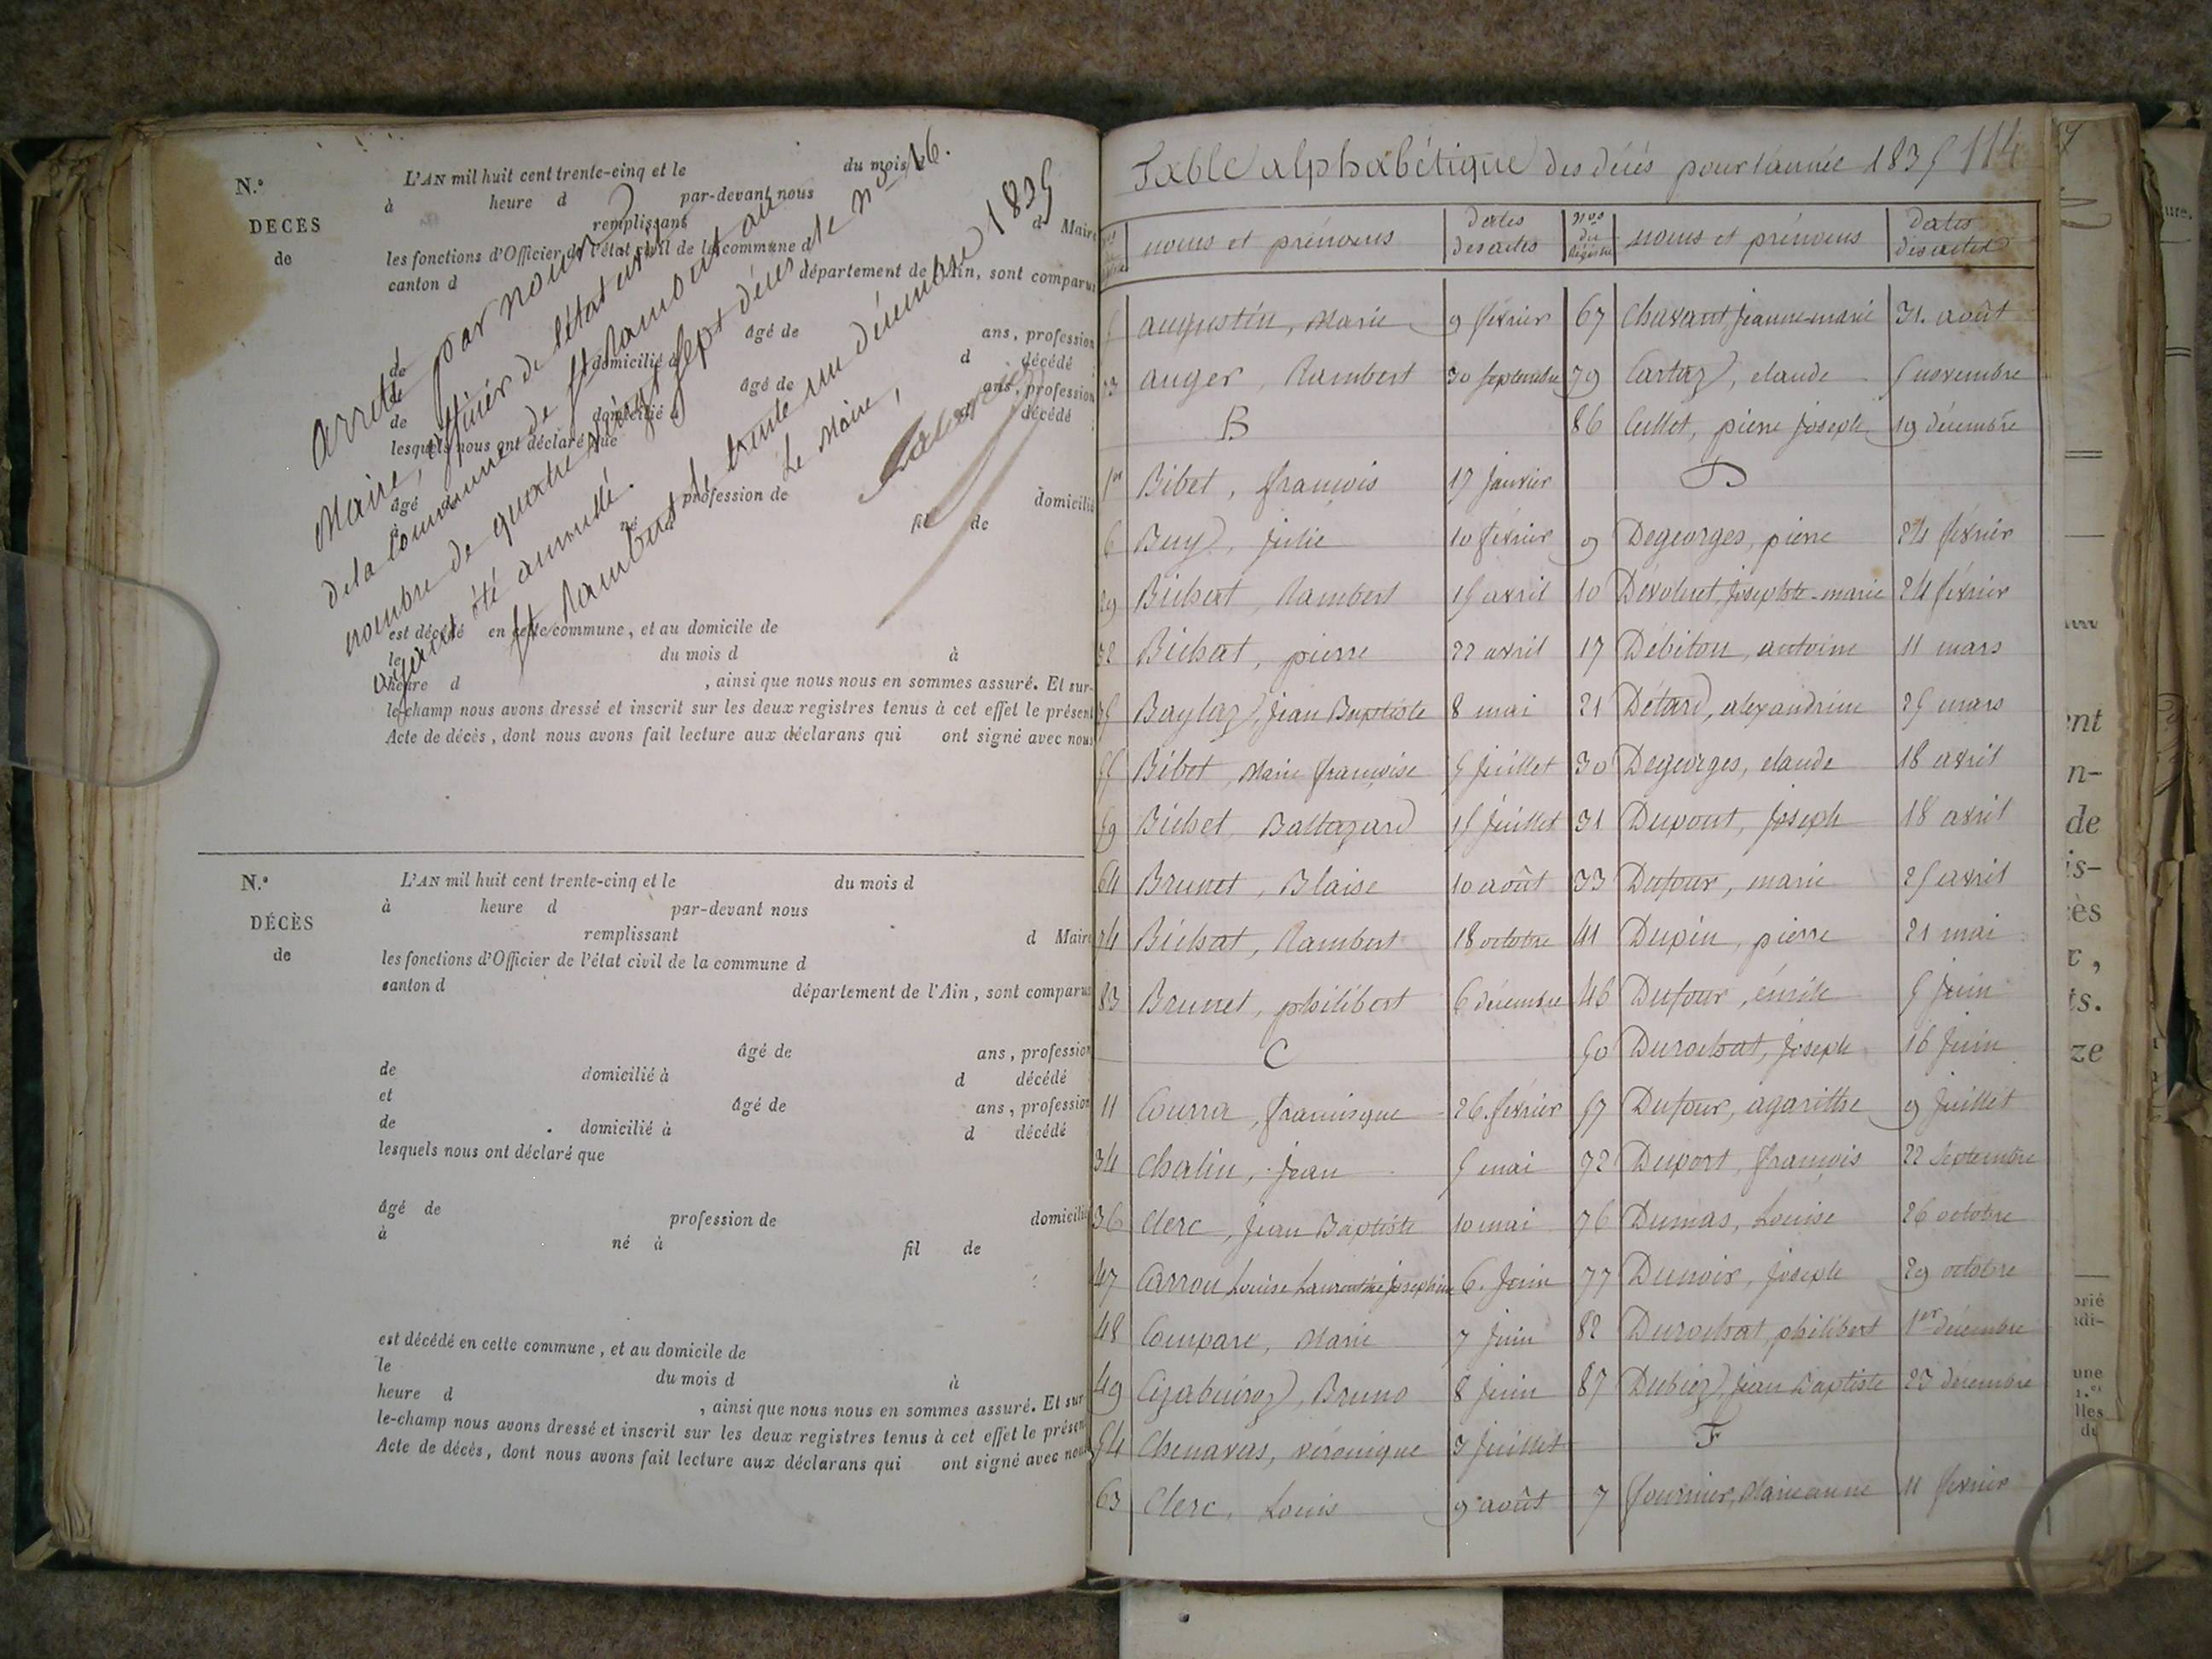 N.° L'AN mil huit cent trente-cinq et le du mois d
à heure d par-devant nous
DÉCÈS remplissant d Maire
de les fonctions d'Officier de l'état civil de la commune d
canton d département de l'Ain, sont comparus
âgé de ans, profession
de domicilié à d décédé
et âgé de ans, profession
de domicilié à d décédé
lesquels nous ont déclaré que
âgé profession de domicilié
à né à fil de
est décédé en cette commune, et au domicile de
le du mois d à
heure d , ainsi que nous nous en sommes assuré. Et sur-
le-champ nous avons dressé et inscrit sur les deux registres tenus à cet effet le présent
Acte de décès, dont nous avons fait lecture aux déclarans qui ont signé avec nous
arreté par nous
Maire, officier de l'état civil
de la commune de St Rambert au
nombre de quatre vingt sept décès le n° 16.
ayant été annullé.
St Rambert le trente un décembre 1835
Le Maire,
N.° L'AN mil huit cent trente-cinq et le du mois d
à heure d par-devant nous
DÉCÈS remplissant d Maire
de les fonctions d'Officier de l'état civil de la commune d
canton d département de l'Ain, sont comparus
âgé de ans, profession
de domicilié à d décédé
et âgé de ans, profession
de domicilié à d décédé
lesquels nous ont déclaré que
âgé de profession de domicilié
à né à fil de
est décédé en cette commune, et au domicile de
le du mois d à
heure d , ainsi que nous nous en sommes assuré. Et sur
le-champ nous avons dressé et inscrit sur les deux registres tenus à cet effet le présent
Acte de décès, dont nous avons fait lecture aux déclarans qui ont signé avec nous
Table alphabétique des décés pour l'année 1835 114
noms et prénoms dates des actes nos du Régistre noms et prénoms dates des actes
5 augustin, Marie 9 février 67 Chavant jeanne-marie 31. août
73 auger, Rambert 30 septembre 79 Cartaz, claude 5 novembre
B 86 Cullet, pierre joseph 19 décembre
1er Bibet, françois 17 janvier D
6 Buy, julie 10 février 9 Degeorges, pierre 24 février
29 Bichat, Rambert 15 avril 10 Dévoluet, josephte-marie 24 février
32 Bichat, pierre 22 avril 17 Débiton, antoine 11 mars
35 Baylaz, jean Baptiste 8 mai 21 Détard, alexandrine 25 mars
55 Bibet, Marie françoise 5 juillet 30 Degeorges, claude 18 avril
59 Bichet, Baltazard 15 juillet 31 Dupont, joseph 18 avril
64 Brunet, Blaise 10 août 33 Dufour, marie 25 avril
74 Bichat, Rambert 18 octobre 41 Dupin, pierre 21 mai
83 Brunet, philibert 6 décembre 46 Dufour, émile 5 juin
C 50 Durochat, joseph 16 juin
11 Courra, francisque 26. février 57 Dufour, agarithe 9 juillet
34 Chalin, jean 5 mai 72 Duport, françois 22 septembre
36 Clerc, jean Baptiste 10 mai 76 Dumas, Louise 26 octobre
47 Carron Louise Laurenthe josephine 6. juin 77 Dunoir, joseph 29 octobre
48 Compare, Marie 7 juin 82 Durochat, philibert 1er décembre
49 Bruno 8 juin 87 Dubiez, jean Baptiste 23 décembre
54 Chenavas, véronique 3 juillet F
63 Clerc, Louis 9 août 7 fournier, Marie anne 11 février
ent
n-
de
is-
ès
ts.
ze
une
lles